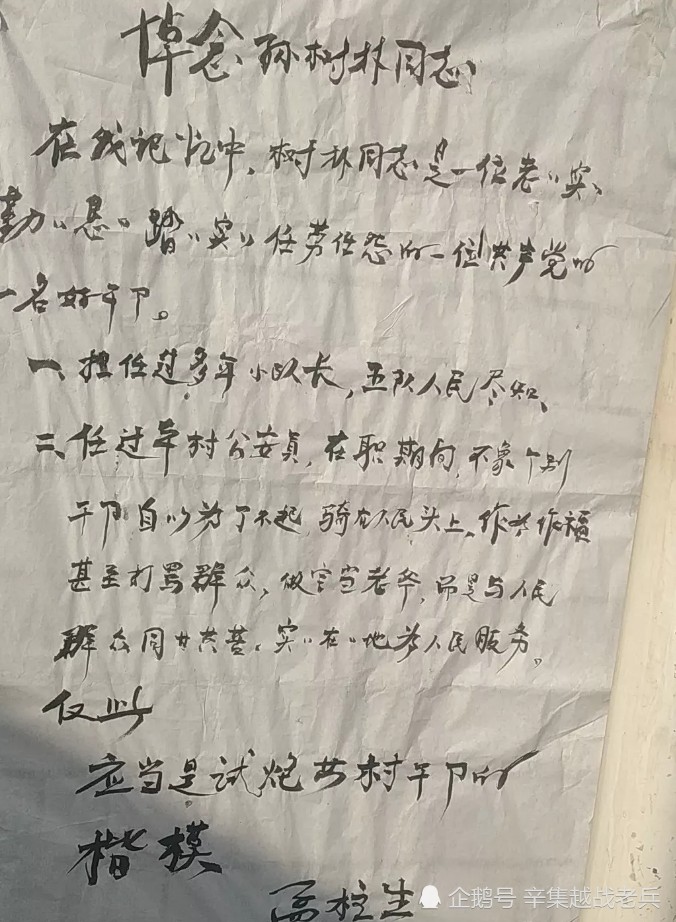 悼念孙树林同志
在我记忆中，树林同志是一位老〃实〃
勤〃恳〃踏〃实〃任劳任怨的一位共产党的
一名好干卩。
一、担任过多年小队长，五队人民尽知、
二、任过本村公安员，在职期间，不象个别
干卩自以为了不起，骑在人民头上、作威作福
甚至打骂群众，做官当老爷，而是与人民
群众同甘共苦、实〃在〃地为人民服务。
仅此
应当是试炮营村干卩的
楷模
孟柱生
企鹅号 辛集越战老兵